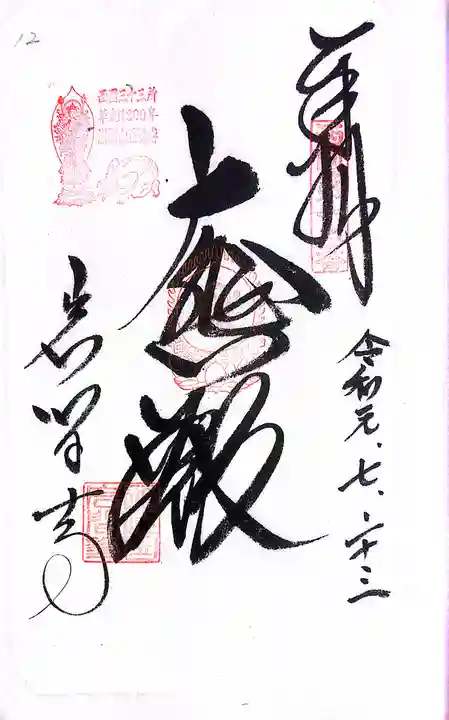 奉拝
令和元、七、二十三
大悲殿
西国三十三所
草創1300年
岩間寺
12